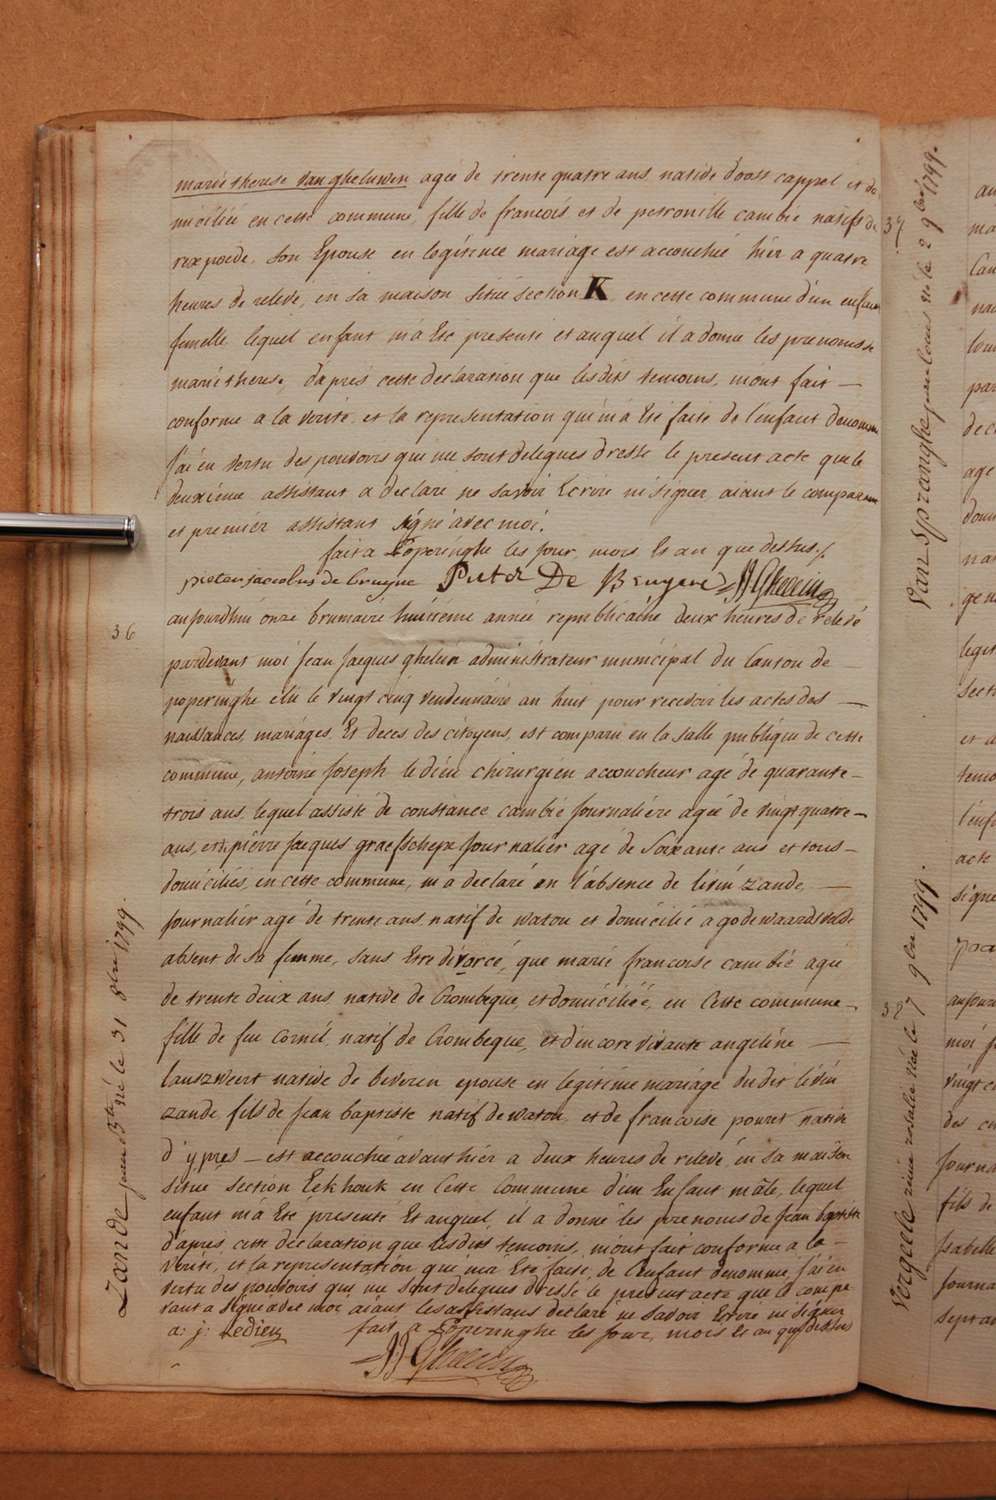 marie therese van gheluwen agée de trente quatre ans native d'oost cappel et do
miciliée en cette commune, fille de francois et de petronille cambié natifs de
rexpoede. son Epouse en legitime mariage est accouchée hier a quatre
heures de relevé, en sa maison situé section K en cette commune d'un enfant
femelle lequel enfant m'a été presenté et auquel il a donné les prenoms de
marie therese, d'aprés cette declaration que lesdits temoins, m'ont fait —
conforme a la verité, et la representation qui m'a Eté faite de l'enfant denommé
J'ai en vertu des pouvoirs qui me sont delegues dressé le present acte que le
deuxiéme assistant a declaré ne savoir Ecrire ni signer, aiant le comparant
et premier assistant signé avec moi.
fait a Poperinghe les jour, mois Et an que dessus ./.
pieter jacobus de bruyne Pieter De Bruyne JJ Ghelein
36
aujourd'hui onze brumaire huitieme année republicaine deux heures de relevé
pardevant moi Jean Jacques ghelein administrateur municipal du Canton de —
poperinghe elu le vingt cinq vendemiaire an huit pour recevoir les actes des —
naissances, mariages, Et deces des citoyens, est comparu en la salle publique de cette
commune, antoine Joseph ledieu chirurgien accoucheur agé de quarante—
trois ans, lequel assisté de constance cambié journaliére agée de vingt quatre—
ans, et pierre Jacques graefschepe journalier agé de soixante ans et tous—
domiciliés, en cette commune, m'a declaré en l'absence de livin zande, —
journalier agé de trente ans natif de watou et domicilié a godewaardsvelde
absent de sa femme, sans Etre divorcé, que marie francoise cambié agée
de trente deux ans, native de Crombeque, et domiciliée, en Cette commune—,
fille de feu Cornil, natif de Crombeque, et d'encore vivante angeline —
lauszweert native de beveren epouse en legitime mariage dudit livin
zande, fils de Jean baptiste natif de watou, et de francoise pouret native
d'ypres — est accouchée avant hier a deux heures de relevé, en sa maison
situé section Eekhouk en Cette Commune d'un Enfant mâle, lequel
enfant m'a Eté presenté Et auquel, il a donné les prenoms de Jean baptiste
d'aprés, cette declaration que lesdits temoins, m'ont fait conforme a la —
verité, et la representation, qui m'a Eté faite, de l'enfant denommé, J'ai en
vertu des pouvoirs qui me sont delegues dressé le present acte que le compa
rant a signé avec moi aiant les assistans declaré ne savoir Ecrire ni signer
a: j: Ledieu fait a Poperinghe les jour, mois Et an que dessus
JJ Ghelein
Zande jean Bte né le 31 8bre 1799.
37
Van Spranghe jean louis né le 2 9bre 1799.
38
Vergeele rosalie née le 7 9bre 1799.